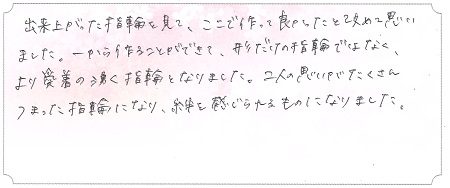 出来上がった指輪を見て、ここで作って良かったと改めて思い
ました。一から作ることができて、形だけの指輪ではなく、
より愛着の湧く指輪となりました。二人の思いがたくさん
つまった指輪になり、絆を感じられるものになりました。